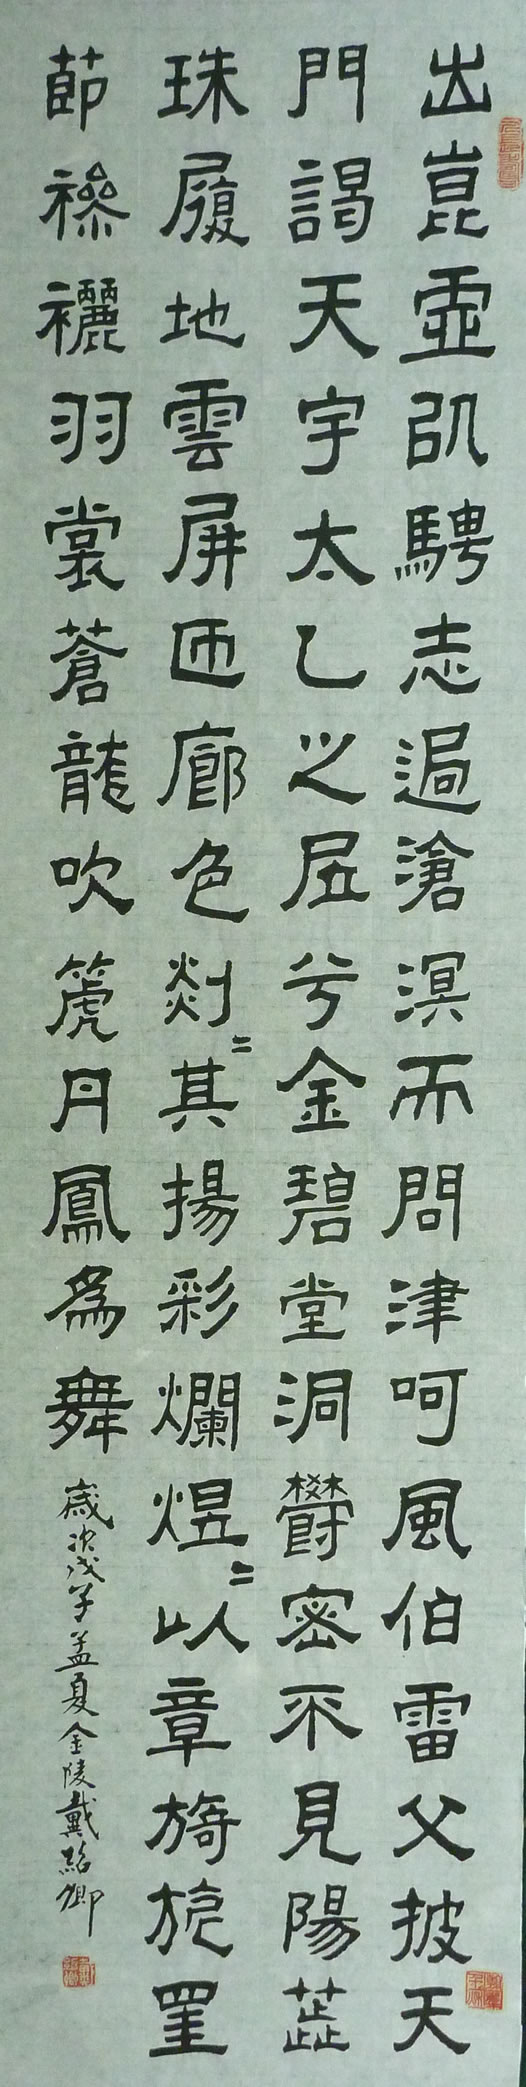 出崑虛凯騁志過滄溟而問津呵風伯雷父披天
門謁天宇太乙之居兮金碧堂洞鬱密不見陽蕋
珠履地雲屏匝廊色剡〻其揚彩爛煜〻以章旖旎
節襂襹羽裳蒼龍吹篪丹鳳為舞
歲次戊子孟夏金陵戴紹卿